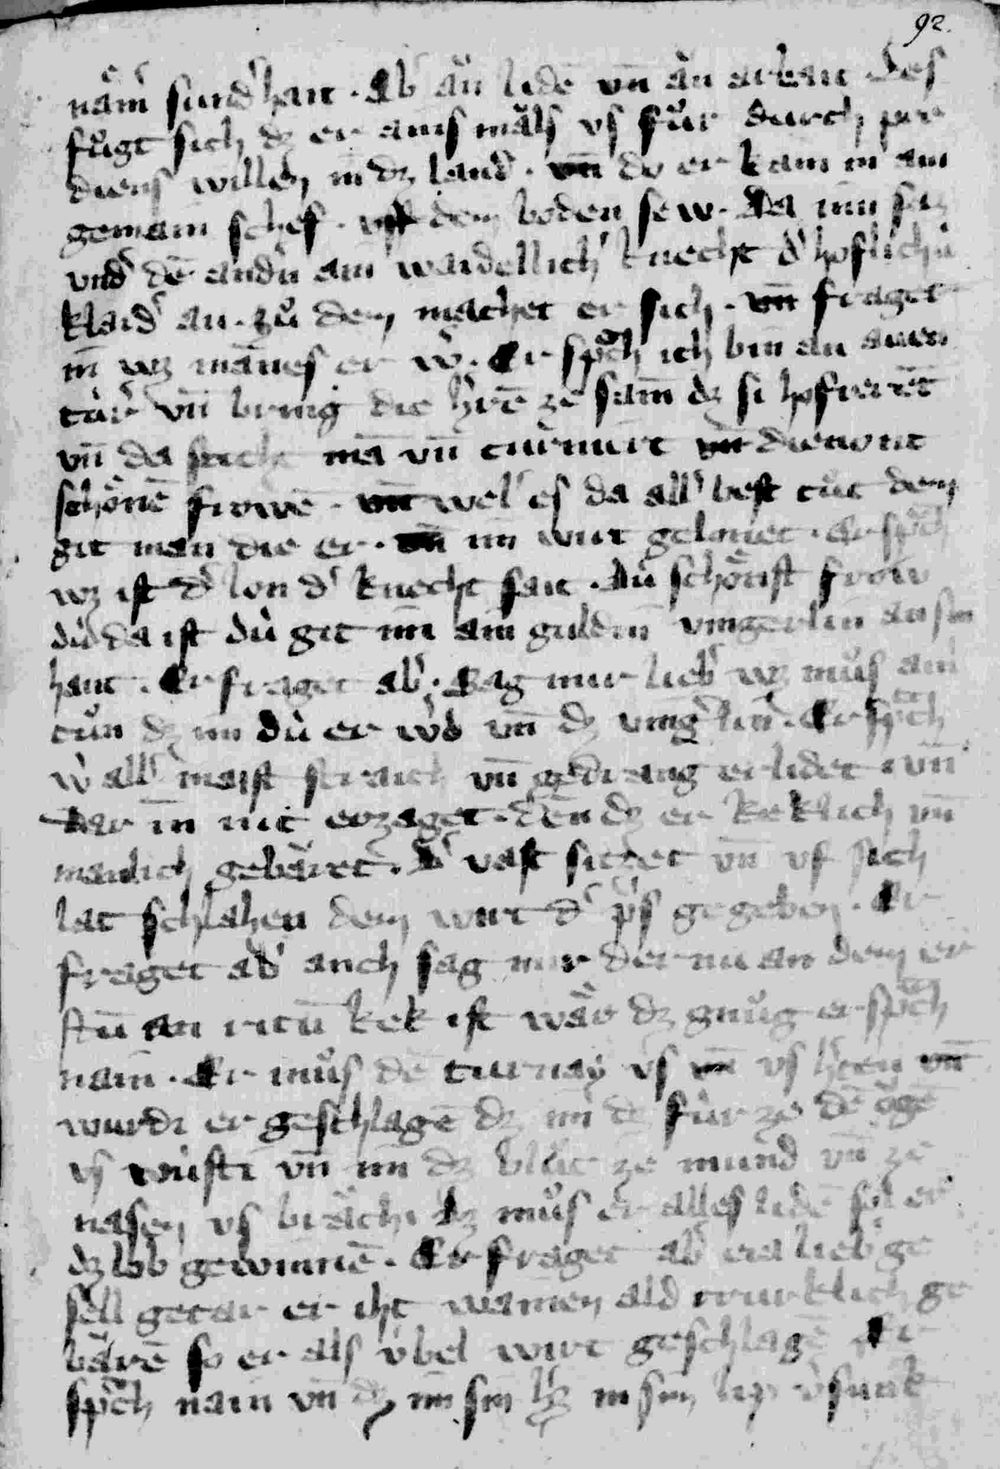 92.
näm sundˈhait. Ab än lidē vn̄ än arbait. des
fůgt sich dz er ains mäls vs für durch pre
diens willen in dz land. vn̄ do er kam in ain
gemain schef. vff dem boden sew. da inn saz
vndˈ dē andn̄ ain waidellichˈ knecht dˈ hoflichü
klaidˈ an. zů dem machet er sich. vn̄ fraget
in wz mannes er wˈ. Er spch ich bin an auen
türˈ vn̄ bring die hrē ze samē dz si hofierēt
vn̄ da sticht mā vn̄ turnurt vn̄ dienont
schönē frowē. vn̄ welˈ es da allˈ best tůt dem
git man die er. vn̄ im wirt gelonet. Er spch
wz ist dˈ lon dˈ knecht sait. dü schönst frow
dü da ist dü git im ain guldin vingerlin an sin
hant. Er fraget abˈ. Sag mir liebˈ wz můs ainˈ
tůn dz im dü er wˈd vn̄ dz vingˈlin. Er spch
wˈ allˈ maist straich vn̄ gedrang erlidet. vn̄
dar in nit erzaget. den dz er keklich vn̄
manlich gebäret. dˈ vast sitzet vn̄ uf sich
lat schlahen dem wirt dˈ pˈs gegeben. Er
fraget abˈ ach sag mir der nu an dem er
sten an ritn̄ kek ist wär dz gnůg er spch
nain. Er můs dē turnay vs vn̄ vs hten vn̄
wurdi er geschlagē dz im dz für ze dē ögē
vs wüsti vn̄ im dz blůt ze mund vn̄ ze
nasen vs brächi dz můs er alles lidē sol er
dz lob gewinnē. Er fraget abˈ eia liebˈ ge
sell getar er iht wainen ald trurklich ge
bärē so er als vbel wirt geschlagē Er
spch nain vn̄ dz im sin hˈz in sim lip vˈsunk